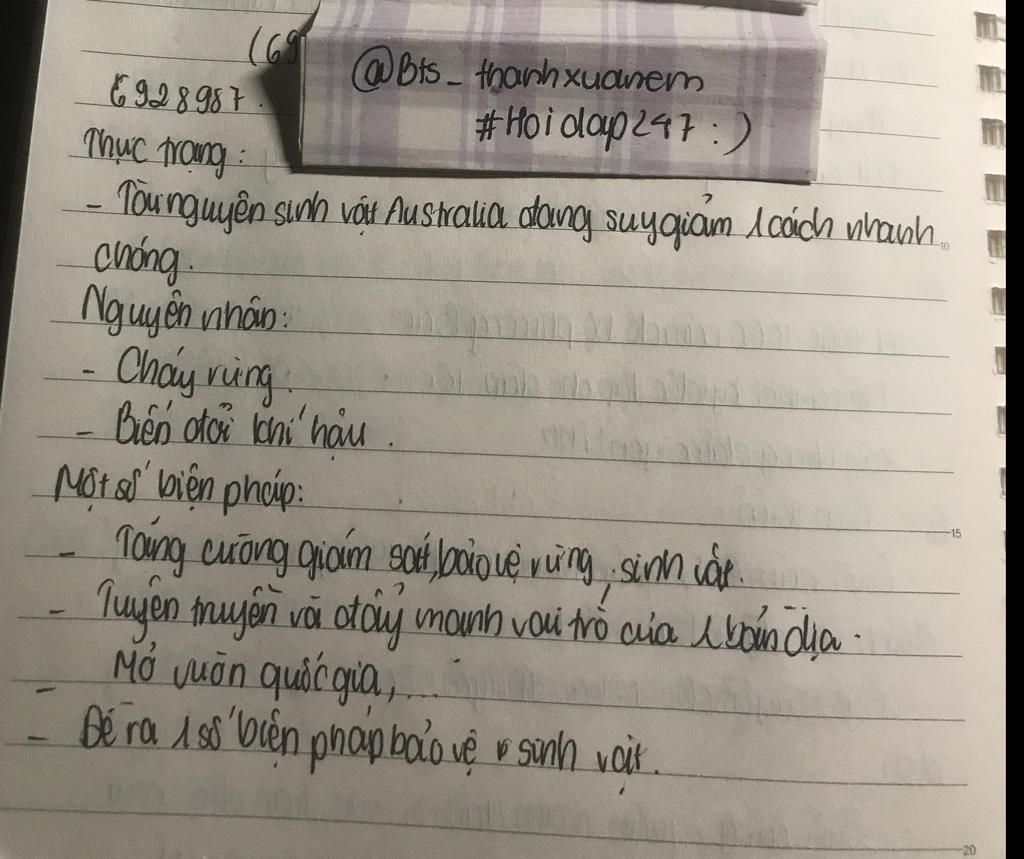 (69
@Bts_thanhxuanem
#Hoidap247 :)
6928987.
Thực trạng:
- Tài nguyên sinh vật Australia đang suy giảm 1 cách nhanh
10
chóng.
Nguyên nhân:
- Cháy rừng.
- Biến đổi khí hậu.
Một số biện pháp:
15
- Tăng cường giám sát, bảo vệ rừng, sinh vật.
- Tuyên truyền và đẩy mạnh vai trò của bản địa.
- Mở vườn quốc gia,...
- Đề ra 1 số biện pháp bảo vệ sinh vật.
20